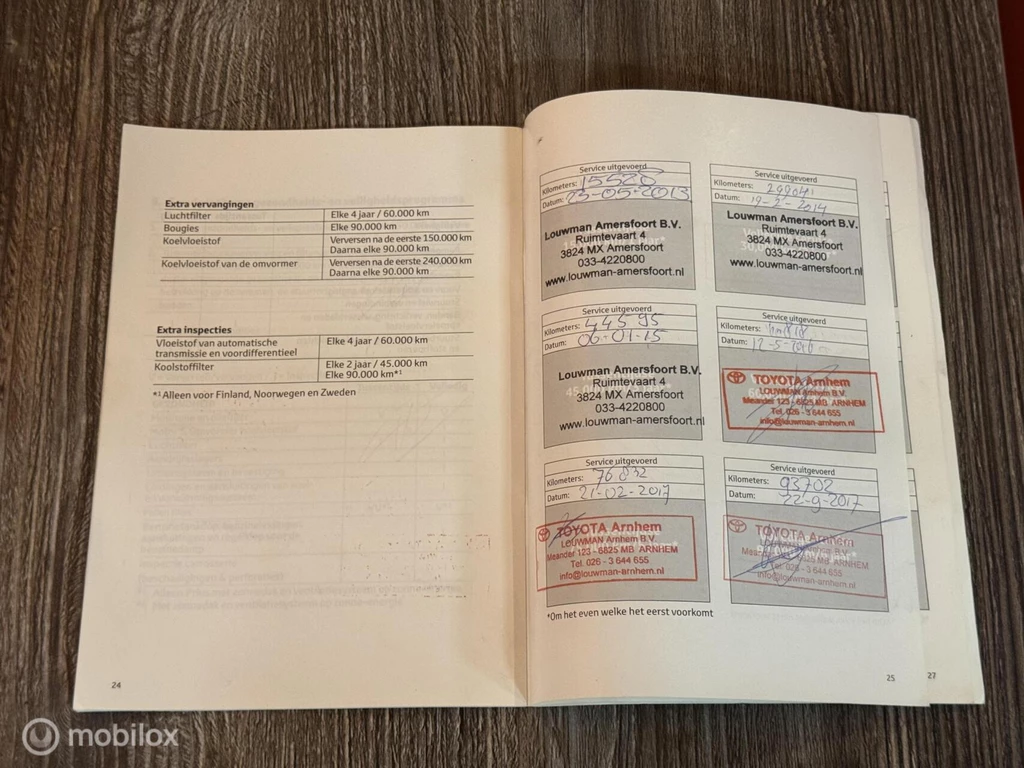 Extra vervangingen
Luchtfilter Elke 4 jaar / 60.000 km
Bougies Elke 90.000 km
Koelvloeistof Verversen na de eerste 150.000 km
Daarna elke 90.000 km
Koelvloeistof van de omvormer Verversen na de eerste 240.000 km
Daarna elke 90.000 km
Extra inspecties
Vloeistof van automatische
transmissie en voordifferentieel Elke 4 jaar / 60.000 km
Koolstoffilter Elke 2 jaar / 45.000 km
Elke 90.000 km*¹
*¹ Alleen voor Finland, Noorwegen en Zweden
24
Service uitgevoerd
Kilometers: 15528
Datum: 23-05-2013
Louwman Amersfoort B.V.
Ruimtevaart 4
3824 MX Amersfoort
033-4220800
www.louwman-amersfoort.nl
Service uitgevoerd
Kilometers:
Datum: 19-2-2014
Louwman Amersfoort B.V.
Ruimtevaart 4
3824 MX Amersfoort
033-4220800
www.louwman-amersfoort.nl
Service uitgevoerd
Kilometers: 44595
Datum: 06-01-15
Louwman Amersfoort B.V.
Ruimtevaart 4
3824 MX Amersfoort
033-4220800
www.louwman-amersfoort.nl
Service uitgevoerd
Kilometers:
Datum:
TOYOTA Arnhem
LOUWMAN Arnhem B.V.
Meander 123 - 6825 MB ARNHEM
Tel. 026 - 3 644 655
info@louwman-arnhem.nl
Service uitgevoerd
Kilometers: 76832
Datum: 21-02-2017
TOYOTA Arnhem
LOUWMAN Arnhem B.V.
Meander 123 - 6825 MB ARNHEM
Tel. 026 - 3 644 655
info@louwman-arnhem.nl
Service uitgevoerd
Kilometers: 93702
Datum: 22-9-2017
TOYOTA Arnhem
LOUWMAN Arnhem B.V.
Meander 123 - 6825 MB ARNHEM
Tel. 026 - 3 644 655
info@louwman-arnhem.nl
*Om het even welke het eerst voorkomt
25
27
mobilox